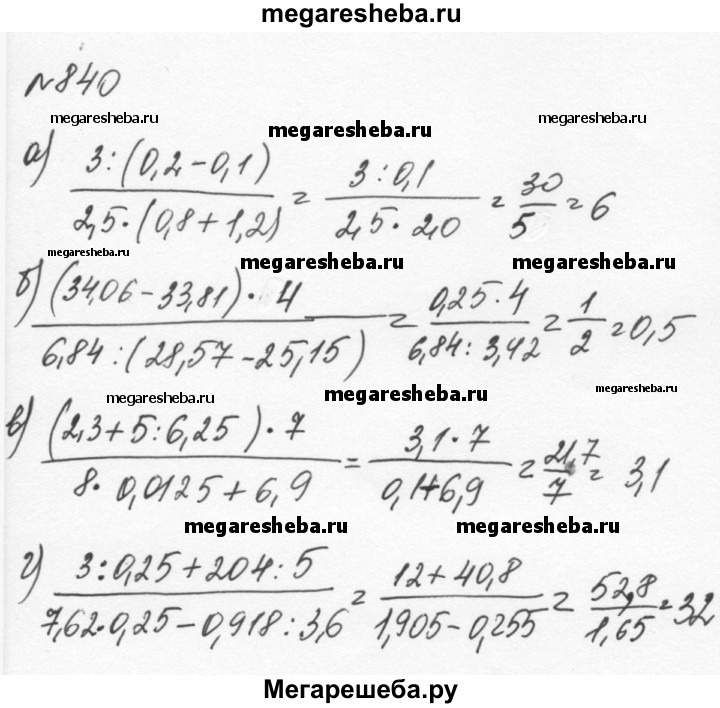 megaresheba.ru
№840
megaresheba.ru megaresheba.ru megaresheba.ru
а) 3:(0,2-0,1) / 2,5·(0,8+1,2) = 3:0,1 / 2,5·2,0 = 30/5 = 6
megaresheba.ru megaresheba.ru megaresheba.ru
б) (34,06-33,81)·4 / 6,84:(28,57-25,15) = 0,25·4 / 6,84:3,42 = 1/2 = 0,5
megaresheba.ru megaresheba.ru megaresheba.ru
в) (2,3+5:6,25)·7 / 8·0,0125+6,9 = 3,1·7 / 0,1+6,9 = 21,7/7 = 3,1
megaresheba.ru megaresheba.ru
г) 3:0,25+204:5 / 7,62·0,25-0,918:3,6 = 12+40,8 / 1,905-0,255 = 52,8/1,65 = 32
Мегарешеба.ру